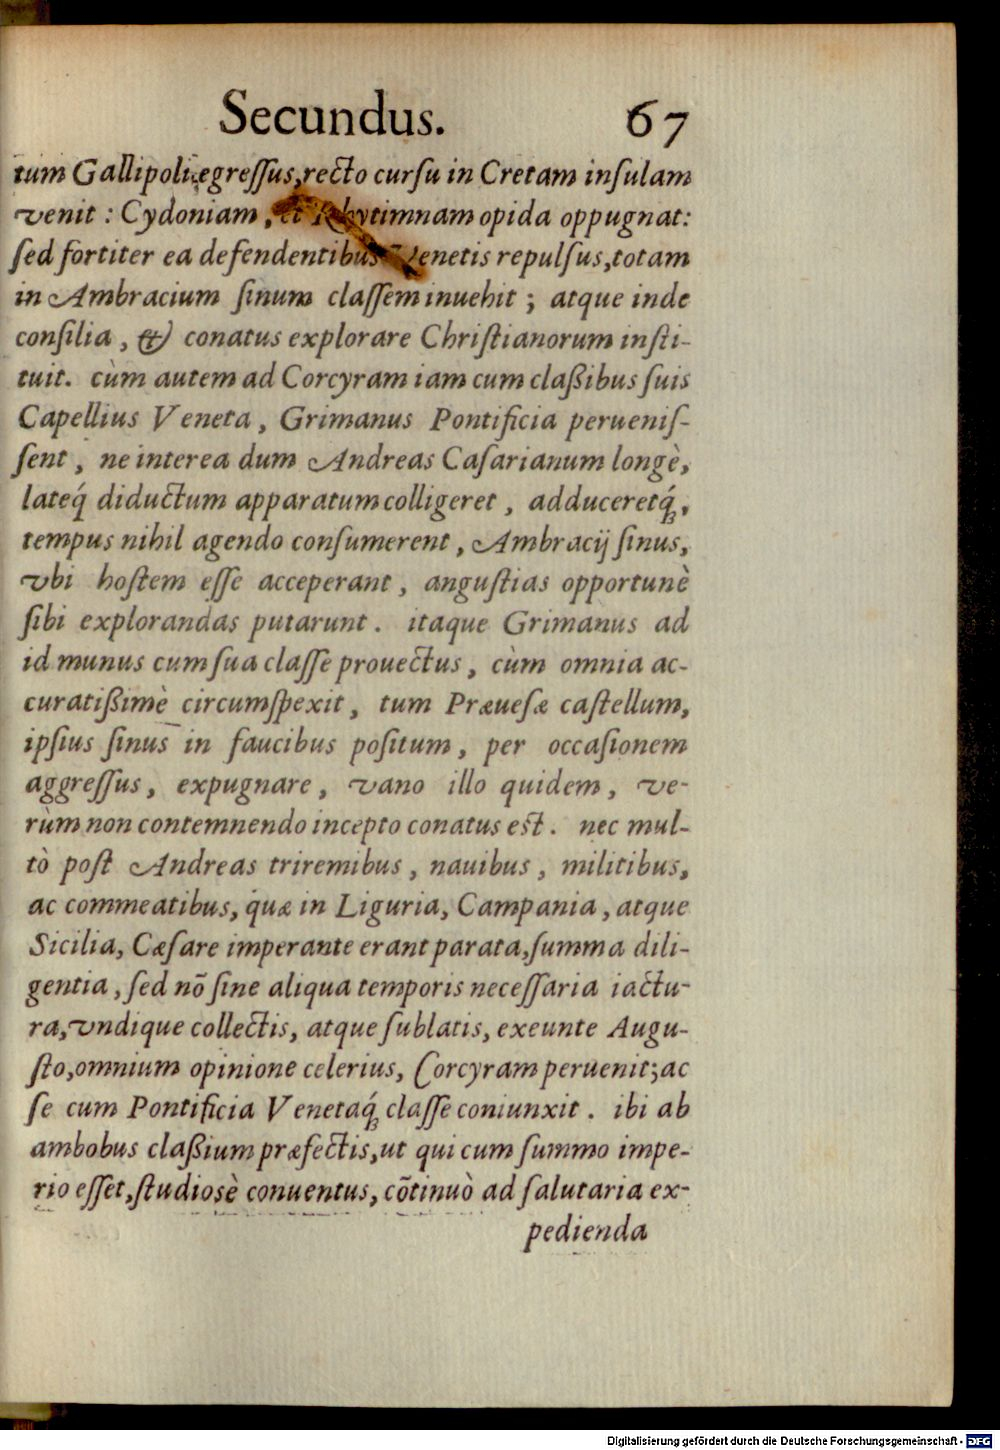 Secundus. 67
tum Gallipoli egreſſus, recto curſu in Cretam inſulam
venit : Cydoniam, et Rhytimnam opida oppugnat:
ſed fortiter ea defendentibus Venetis repulſus, totam
in Ambracium ſinum claſſem inuehit ; atque inde
conſilia, & conatus explorare Chriſtianorum inſti-
tuit. cùm autem ad Corcyram iam cum claßibus ſuis
Capellius Veneta, Grimanus Pontificia perueniſ-
ſent, ne interea dum Andreas Caſarianum longè,
lateq́; diductum apparatum colligeret, adduceretq́;,
tempus nihil agendo conſumerent, Ambracij ſinus,
vbi hoſtem eſſe acceperant, anguſtias opportunè
ſibi explorandas putarunt. itaque Grimanus ad
id munus cum ſua claſſe prouectus, cùm omnia ac-
curatißimè circumſpexit, tum Præueſæ caſtellum,
ipſius ſinus in faucibus poſitum, per occaſionem
aggreſſus, expugnare, vano illo quidem, ve-
rùm non contemnendo incepto conatus est. nec mul-
tò poſt Andreas triremibus, nauibus, militibus,
ac commeatibus, quæ in Liguria, Campania, atque
Sicilia, Cæſare imperante erant parata, ſumma dili-
gentia, ſed nõ ſine aliqua temporis neceſſaria iactu-
ra, vndique collectis, atque ſublatis, exeunte Augu-
ſto, omnium opinione celerius, Corcyram peruenit; ac
ſe cum Pontificia Venetaq́; claſſe coniunxit. ibi ab
ambobus claßium præfectis, ut qui cum ſummo impe-
rio eſſet, ſtudiosè conuentus, cõtinuò ad ſalutaria ex-
pedienda
Digitalisierung gefördert durch die Deutsche Forschungsgemeinschaft - DFG